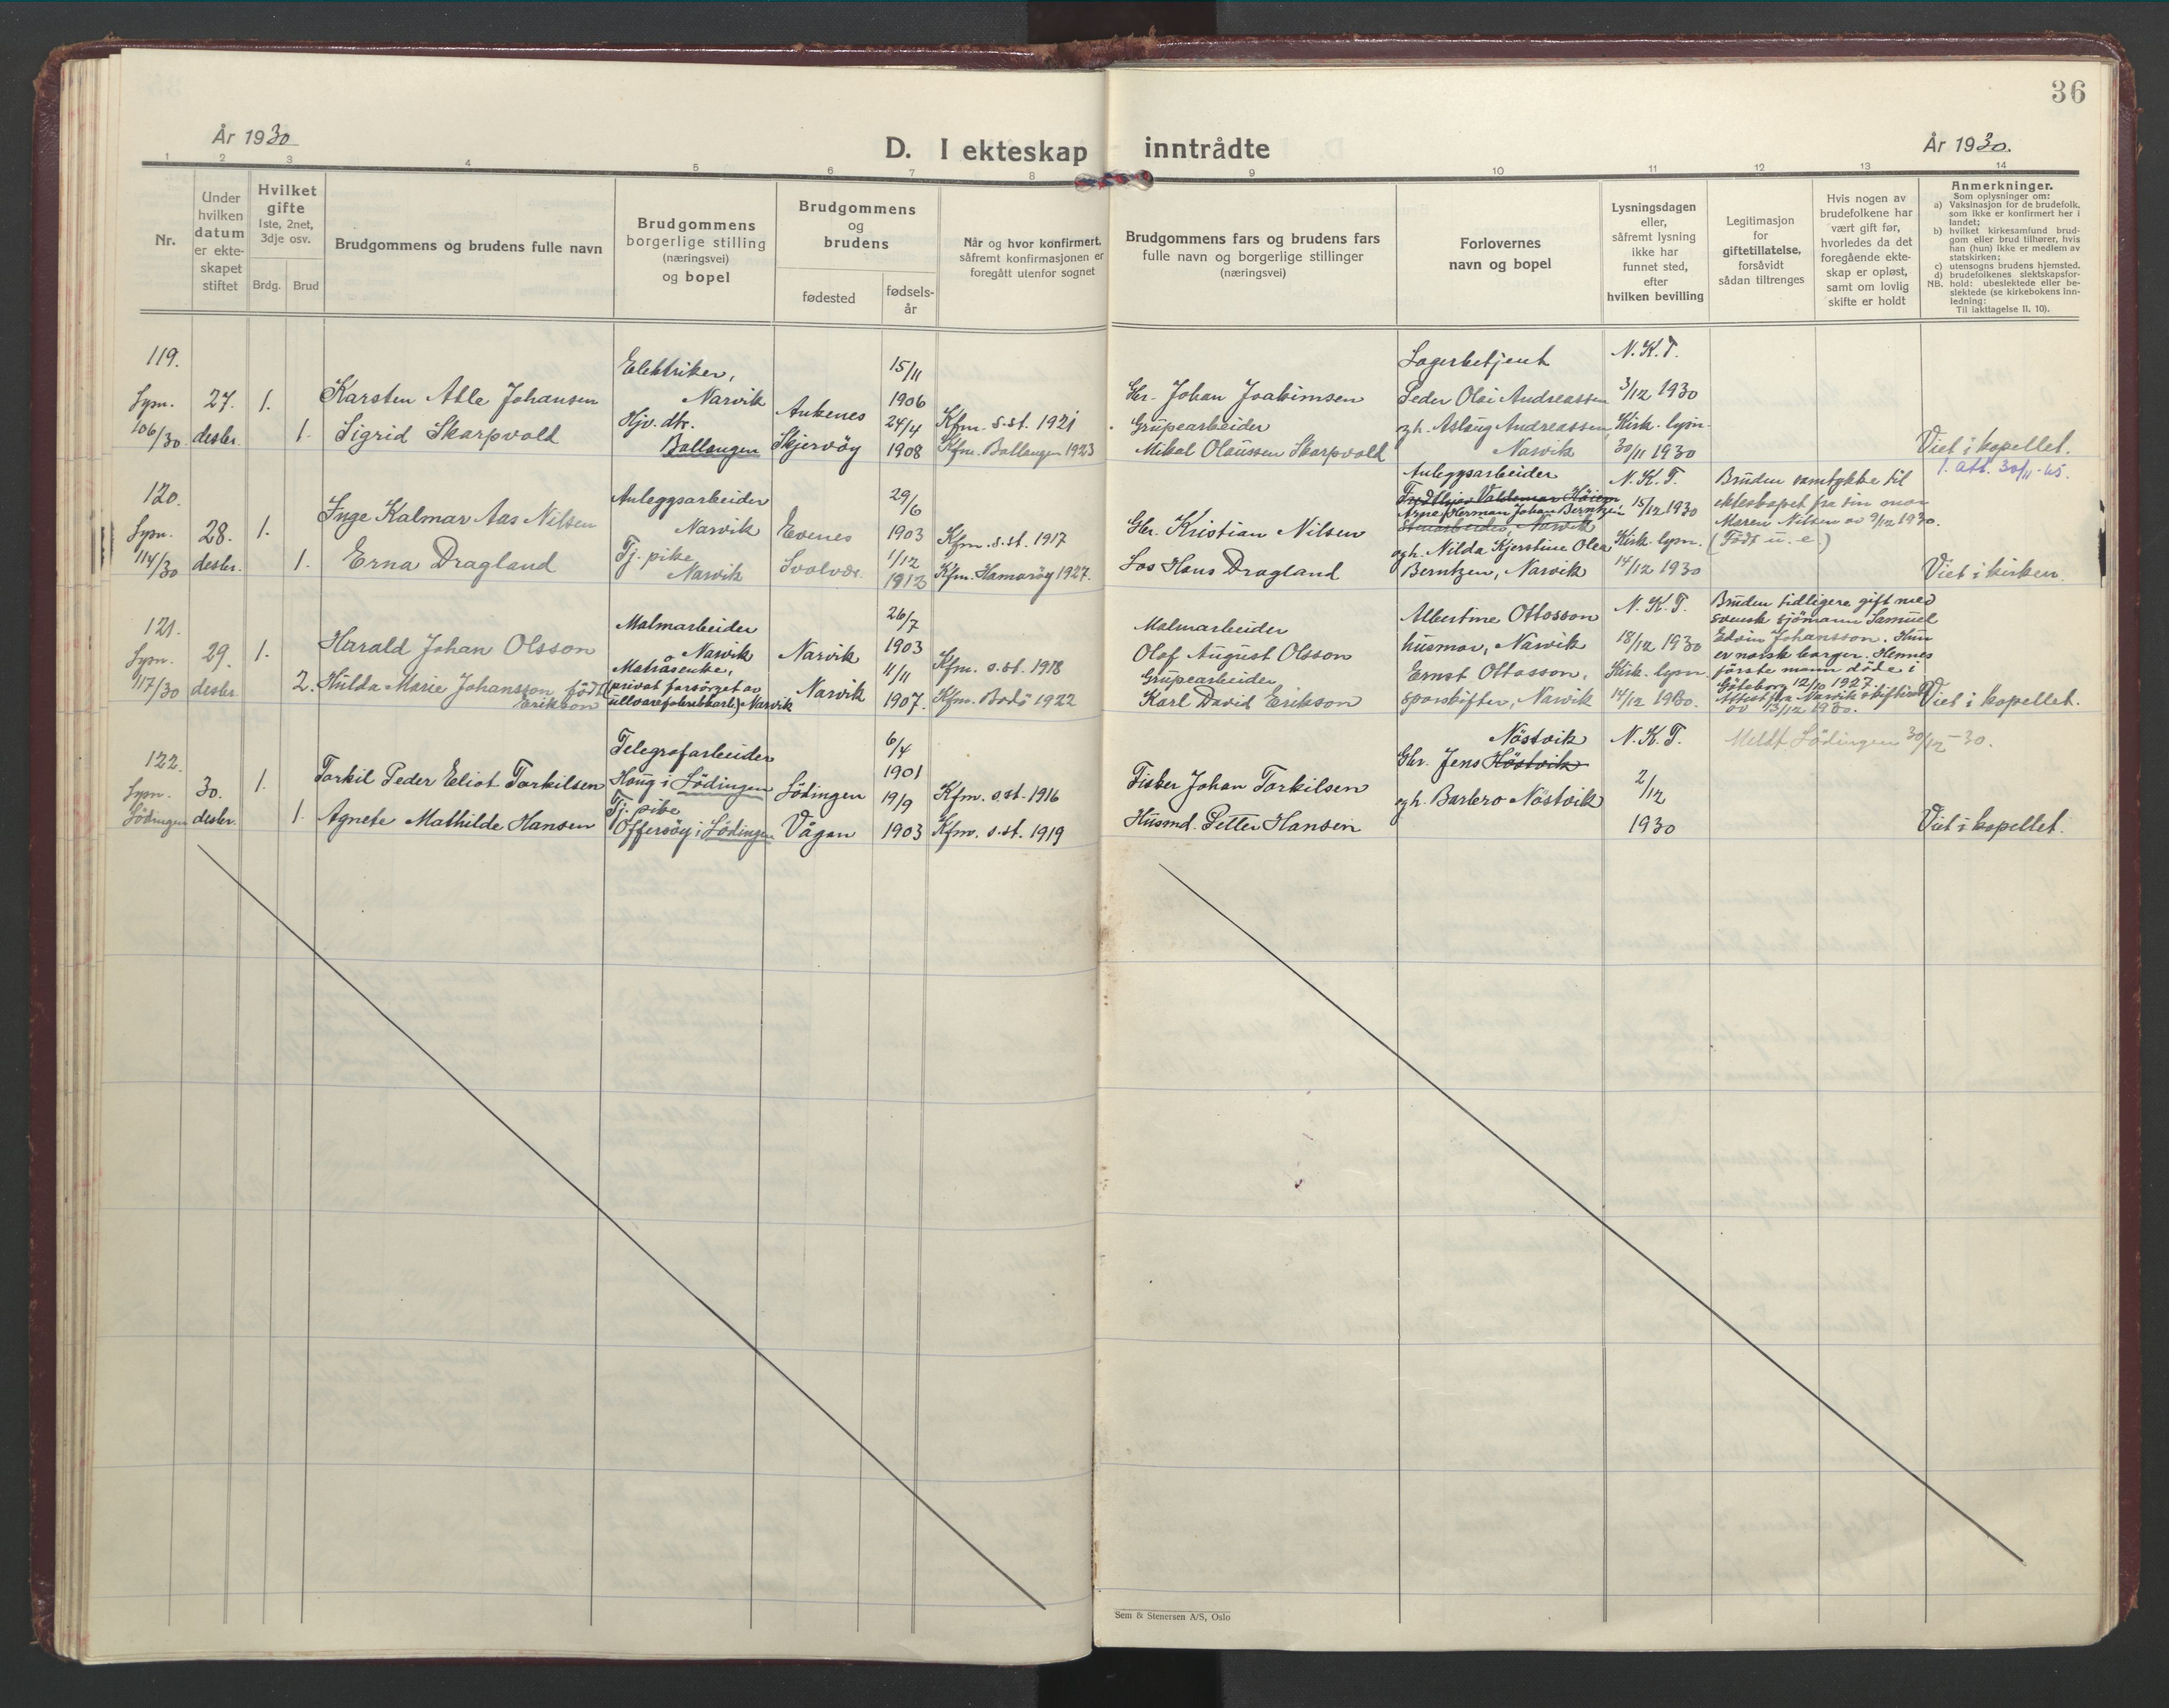 36
År 1930
D. I ekteskap inntrådte
År 1930.
1 2 3 4 5 6 7 8 9 10 11 12 13 14
Nr.
Under
hvilken
datum
er ekte-
skapet
stiftet
Hvilket
gifte
1ste, 2net,
3dje osv.
Brdg.
Brud
Brudgommens og brudens fulle navn
Brudgommens
borgerlige stilling
(næringsvei)
og bopel
Brudgommens
og
brudens
fødested
fødsels-
år
Når og hvor konfirmert,
såfremt konfirmasjonen er
foregått utenfor sognet
Brudgommens fars og brudens fars
fulle navn og borgerlige stillinger
(næringsvei)
Forlovernes
navn og bopel
Lysningsdagen
eller,
såfremt lysning
ikke har
funnet sted,
efter
hvilken bevilling
Legitimasjon
for
giftetillatelse,
forsåvidt
sådan tiltrenges
Hvis nogen av
brudefolkene har
vært gift før,
hvorledes da det
foregående ekte-
skap er opløst,
samt om lovlig
skifte er holdt
Anmerkninger.
Som oplysninger om:
a) Vaksinasjon for de brudefolk,
som ikke er konfirmert her i
landet;
b) hvilket kirkesamfund brud-
gom eller brud tilhører, hvis
han (hun) ikke er medlem av
statskirken;
c) utensogns brudens hjemsted.
d) brudefolkenes slektskapsfor-
NB. hold: ubeslektede eller be-
slektede (se kirkebokens inn-
ledning:
Til iakttagelse II, 10).
119.
Lysn.
106/30
27.
desbr.
1.
1.
Karsten Atle Johansen
Sigrid Skarpvold
Elektriker,
Narvik
Hjv. dtr.
Ballangen
Ankenes
Skjervöy
15/11
1906
24/4
1908
Kfm. s.st. 1921
Kfm. Ballangen 1923
Gbr. Johan Joakimsen
Grubearbeider
Mikal Olaussen Skarpvold
Lagerbetjent
Peder Olai Andreassen
og h. Aslaug Andreassen,
Narvik
N. K. T.
3/12 1930
Kirk. lysn.
30/11 1930
Viet i kapellet.
1. att. 30/11-65.
120.
Lysn.
114/30
28.
desbr.
1.
1.
Inge Kalmar Aas Nilsen
Erna Dragland
Anleggsarbeider
Narvik
Tj. pike
Narvik
Evenes
Svolvær.
29/6
1903
1/12
1912
Kfm. s.st. 1917
Kfm. Hamaröy 1927.
Gbr. Kristian Nilsen
Los Hans Dragland
Anleggsarbeider
Fredthjov Valdemar Höien
Arne Herman Johan Berntzen
Stuearbeider, Narvik
og h. Nilda Kjerstine Olea
Berntzen, Narvik
N. K. T.
15/12 1930
Kirk. lysn.
14/12 1930
Bruden samtykke til
ekteskapet fra sin mor
Maren Nilsen av 9/12 1930.
(Född u. e.)
Viet i kirken.
121.
Lysn.
117/30
29.
desbr.
1.
2.
Harald Johan Olsson
Hulda Marie Johansson född
Erikson
Malmarbeider
Narvik
Matrosenke,
(privat forsörget av
Narvik
Narvik
Narvik
26/7
1903
11/11
1907.
Kfm. s.st. 1918
Kfm. Bodö 1922
Malmarbeider
Olof August Olsson
Grubearbeider
Karl David Erikson
Albertine Ottosson
husmor, Narvik
Ernst Ottosson,
sporskifter, Narvik
N. K. T.
18/12 1930
Kirk. lysn.
14/12 1930.
Bruden tidligere gift med
svensk sjömann Samuel
Edvin Johansson. Hun
er norsk borger. Hennes
förste mann döde i
Göteborg 12/10 1927.
Attest fra Narvik skifterett
av 13/12 1930.
Viet i kapellet.
122.
Lysn.
Lödingen
30.
desbr.
1.
1.
Torkil Peder Eliot Torkilsen
Agnete Mathilde Hansen
Telegrafarbeider
Haug i Lödingen
Tj. pike
Offersöy i Lödingen
Lödingen
Vågan
6/4
1901
19/9
1903
Kfm. s.st. 1916
Kfm. s.st. 1919
Fisker Johan Torkilsen
Husmd. Petter Hansen
Nöstvik
Gbr. Jens Höstvik
og h. Barbro Nöstvik
N. K. T.
2/12
1930
Meldt Lödingen 30/12-30.
Viet i kapellet.
Sem & Stenersen A/S, Oslo